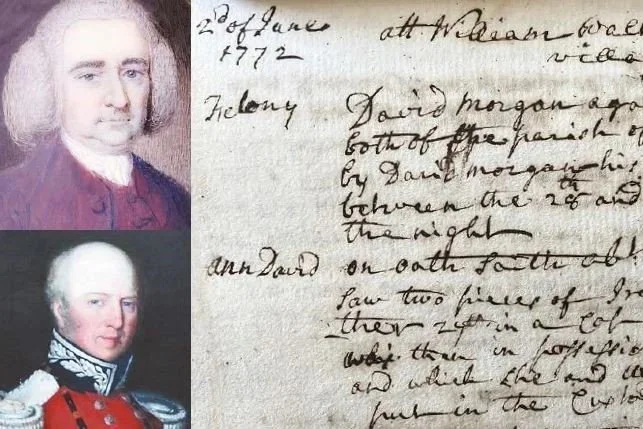 2d of June att William
1772 villa
Felony David Morgan aga
both of the parish of
by David Morgan his
between the 28th and
the night
Ann David on oath saith
saw two pieces of Iro
ther in a
them in possessio
and which she and
put in the